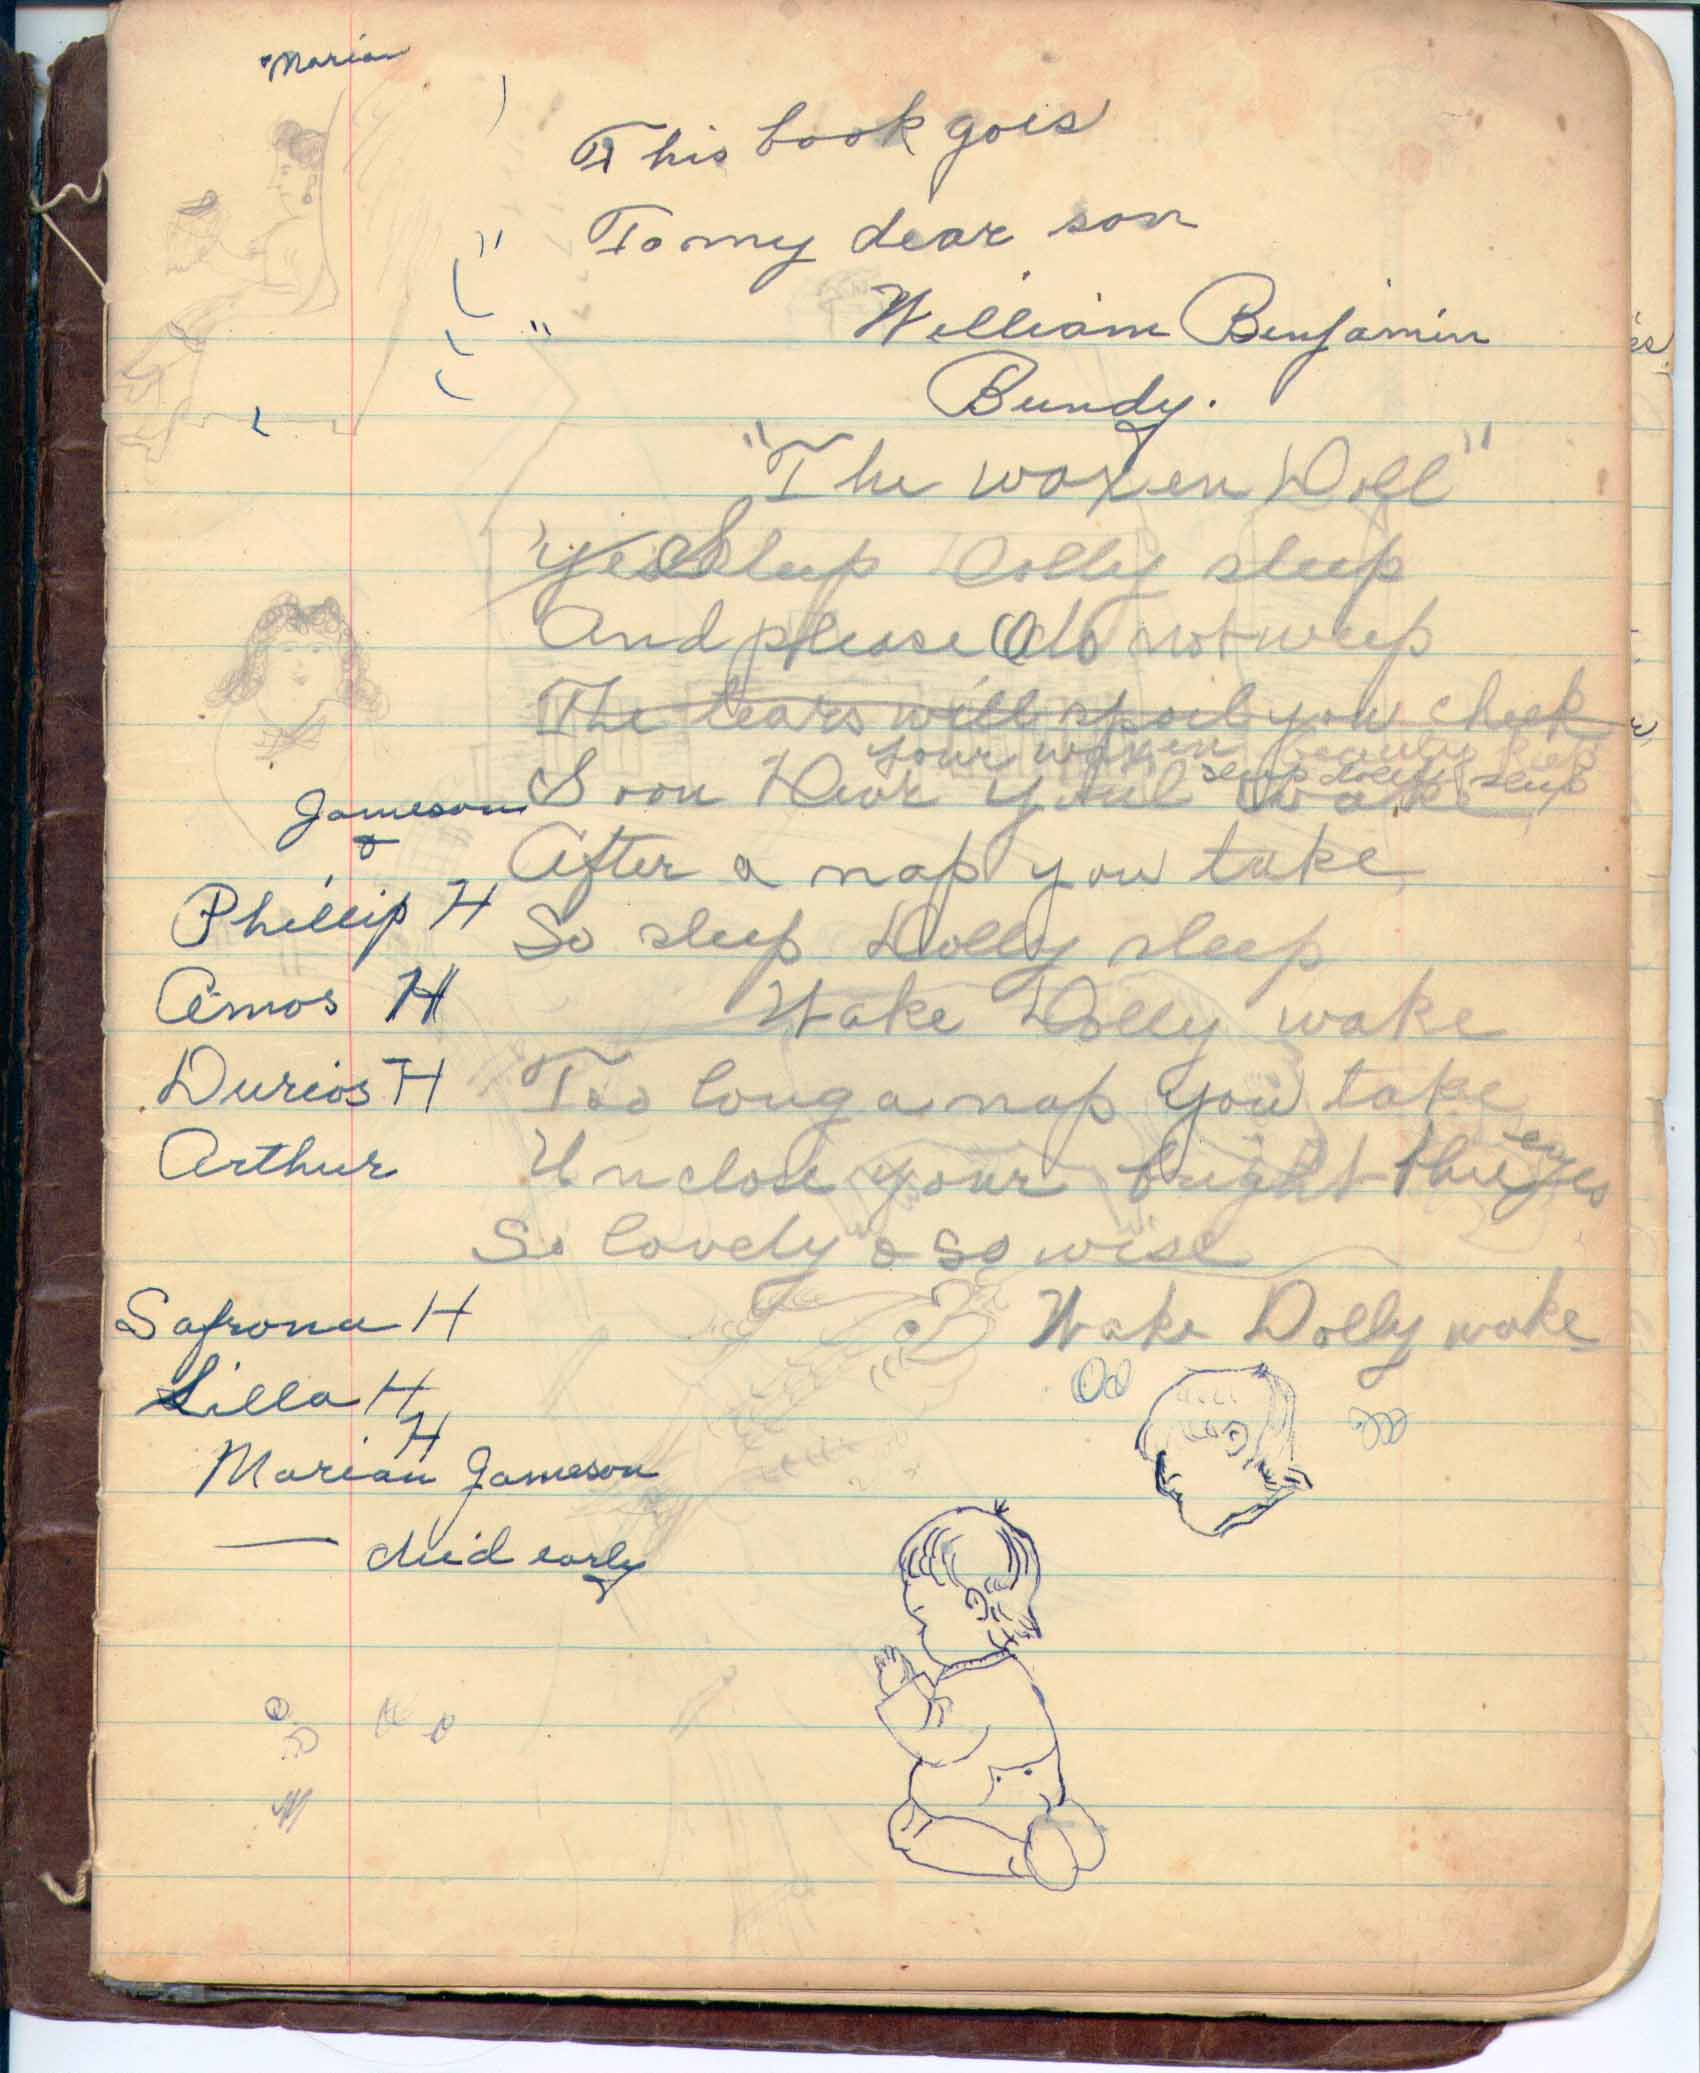 Marian
This book goes
To my dear son
William Benjamin
Bundy.
"The waxen Doll"
Yes Sleep Dolly sleep
And please do not weep
The tears will spoil you cheek
your waxen beauty keep
sleep dolly sleep
Soon Dear you'll wake
After a nap you take
So sleep Dolly sleep
Wake Dolly wake
Too long a nap you take
Unclose your bright blue eyes
So lovely & so wise
Wake Dolly wake
Jameson
&
Phillip H
Amos H
Durios H
Arthur
Safrona H
Lilla H
H
Marian Jameson
— died early